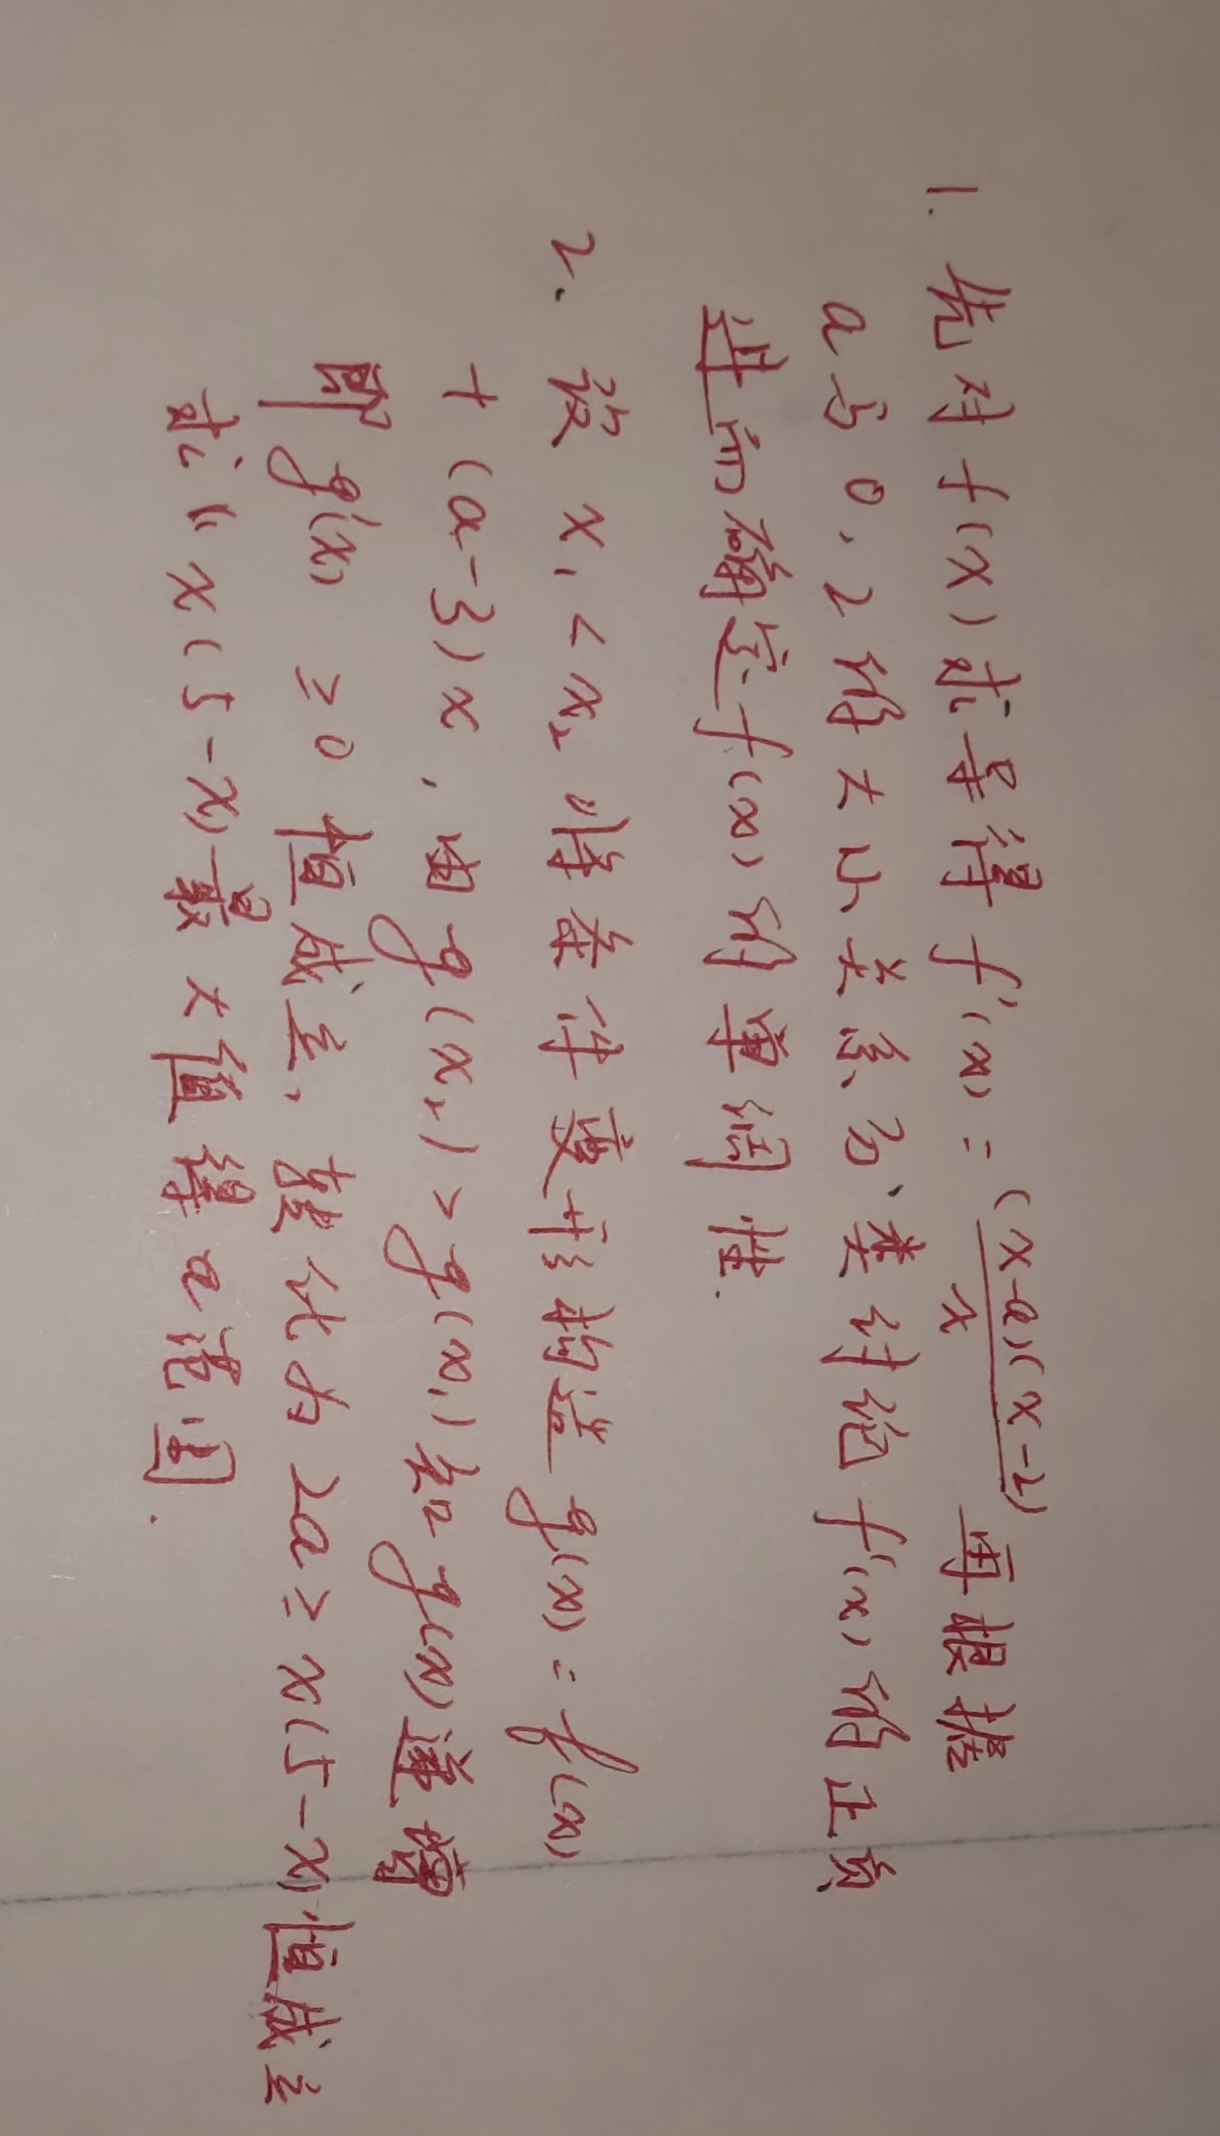 1. 先对f(x)求导得f'(x)=(x-a)(x-2)/x 再根据
a与0,2的大小关系分类讨论f'(x)的正负
进而确定f(x)的单调性.
2. 设x₁<x₂将条件变形构造g(x)=f(x)
+(a-3)x,由g(x₂)>g(x₁)知g(x)递增
即g'(x)≥0恒成立,转化为2a≥x(5-x)恒成立
求x(5-x)最大值得a范围.